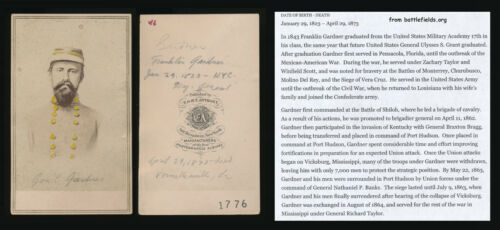 Gen'l Gardner
46
Gardner
Franklin Gardner
Jan 29, 1823 - NYC.
Brig. General
Published by
E. & H. T. ANTHONY
MANUFACTURERS
1776
DATE OF BIRTH - DEATH
from battlefields.org
January 29, 1823 – April 29, 1873
In 1843 Franklin Gardner graduated from the United States Military Academy 17th in
his class, the same year that future United States General Ulysses S. Grant graduated.
After graduation Gardner first served in Pensacola, Florida, until the outbreak of the
Mexican-American War. During the war, he served under Zachary Taylor and
Winfield Scott, and was noted for bravery at the Battles of Monterrey, Churubusco,
Molino Del Rey, and the Siege of Vera Cruz. He served in the United States Army
until the outbreak of the Civil War, when he returned to Louisiana with his wife's
family and joined the Confederate army.
Gardner first commanded at the Battle of Shiloh, where he led a brigade of cavalry.
As a result of his actions, he was promoted to brigadier general on April 11, 1862.
Gardner then participated in the invasion of Kentucky with General Braxton Bragg,
before being transferred and placed in command of Port Hudson. Once placed in
command at Port Hudson, Gardner spent considerable time and effort improving
fortifications in preparation for an expected Union attack. Once the Union attacks
began on Vicksburg, Mississippi, many of the troops under Gardner were withdrawn,
leaving him with only 7,000 men to protect the strategic position. By May 22, 1863,
Gardner and his men were surrounded in Port Hudson by Union forces under the
command of General Nathaniel P. Banks. The siege lasted until July 9, 1863, when
Gardner and his men finally surrendered after hearing of the collapse of Vicksburg.
Gardner was exchanged in August of 1864, and served for the rest of the war in
Mississippi under General Richard Taylor.